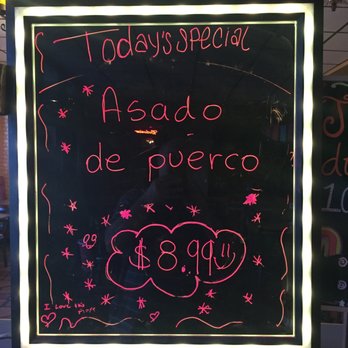 Today's special
Asado
de puerco
$8.99!!
I love this